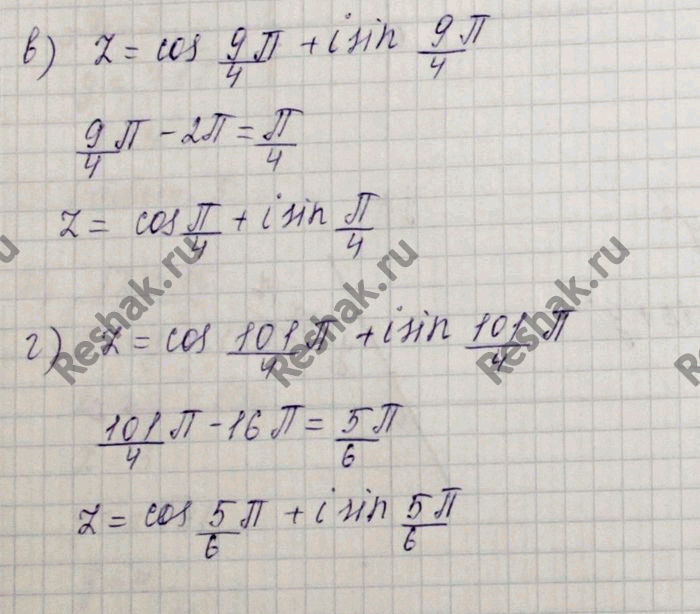 в) z = cos 9/4 π + i sin 9/4 π
9/4 π - 2π = π/4
z = cos π/4 + i sin π/4
г) z = cos 101/4 π + i sin 101/4 π
101/4 π - 16π = 5/6 π
z = cos 5/6 π + i sin 5/6 π
Reshak.ru Reshak.ru Reshak.ru